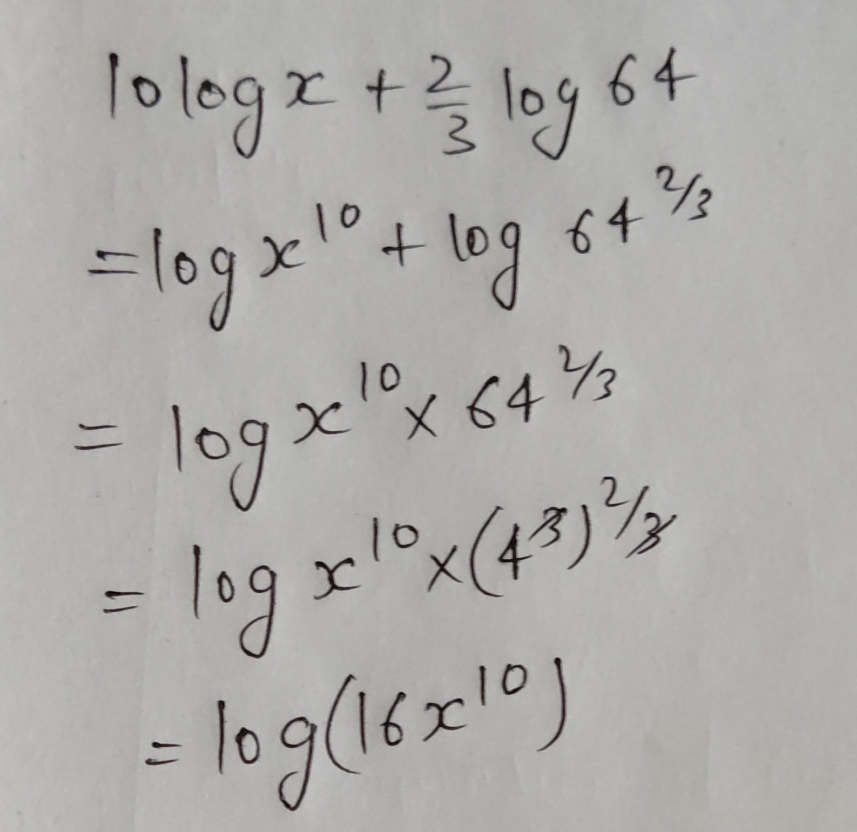 10 log x + 2/3 log 64
= log x^10 + log 64^2/3
= log x^10 × 64^2/3
= log x^10 × (4^3)^2/3
= log(16x^10)